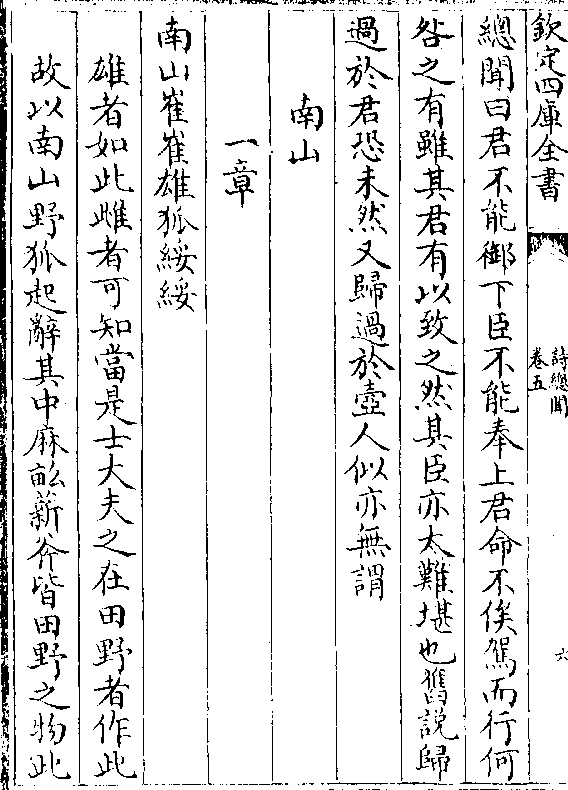 欽定四庫全書
詩總聞
卷五
六
總聞曰君不能御下臣不能奉上君命不俟駕而行何
咎之有雖其君有以致之然其臣亦太難堪也舊說歸
過於君恐未然又歸過於壺人似亦無謂
南山
一章
南山崔崔雄狐綏綏
雄者如此雌者可知當是士大夫之在田野者作此
故以南山野狐起辭其中麻畝薪斧皆田野之物此